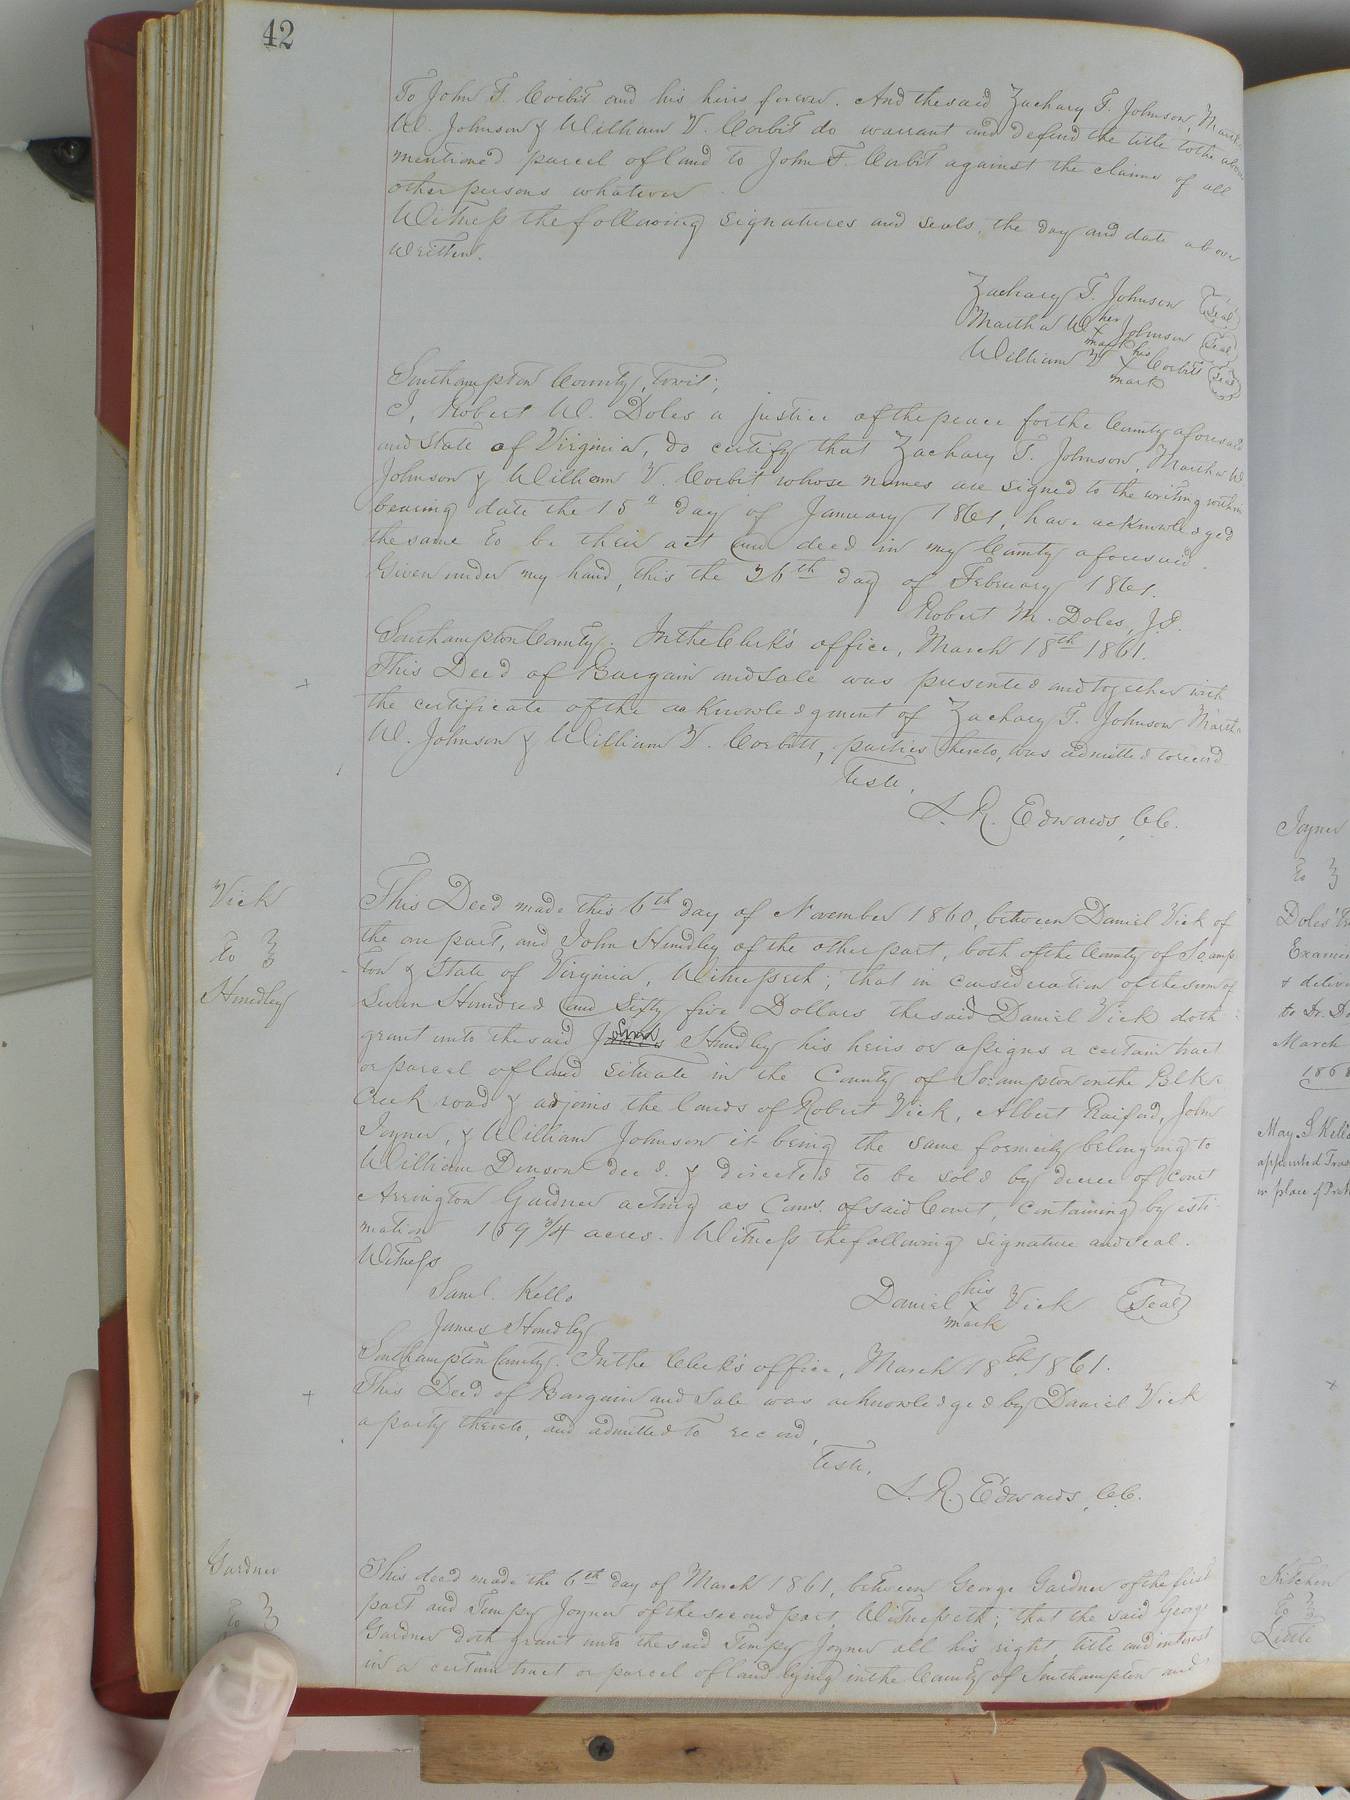 42
To John F. Corbit and his heirs forever. And the said Zachary T. Johnson, Martha
W. Johnson & William V. Corbit do warrant and defend the title to the above
mentioned parcel of land to John F. Corbit against the claims of all
other persons whatever
Witness the following signatures and seals, the day and date above
written.
Zachary T. Johnson (Seal)
Martha W. her x mark Johnson (Seal)
William V his x mark Corbitt (Seal)
Southampton County, towit;
I, Robert W. Doles a justice of the peace for the County aforesaid
and State of Virginia, do certify that Zachary T. Johnson, Martha W
Johnson & William V. Corbit whose names are signed to the writing within
bearing date the 15th day of January 1861, have acknowledged
the same to be their act and deed in my County aforesaid.
Given under my hand, this the 26th day of February 1861.
Robert M. Doles, J.P.
Southampton County. In the Clerk's office, March 18th 1861.
This Deed of Bargain and Sale was presented and together with
the certificate of the acknowledgment of Zachary T. Johnson Martha
W. Johnson & William V. Corbitt, parties thereto, was admitted to record
Teste,
L. R. Edwards, C.C.
Vick
To
Hundley
This Deed made this 6th day of November 1860, between Daniel Vick of
the one part, and John Hundley of the other part, both of the County of So.amp
ton & State of Virginia, Witnesseth; that in consideration of the sum of
Seven Hundred and Fifty five Dollars the said Daniel Vick doth
grant unto the said Hundley his heirs or assigns a certain tract
or parcel of land situate in the County of So:ampton on the Blk.
Creek road & adjoins the lands of Robert Vick, Albert Raiford, John
Joyner, & William Johnson it being the same formerly belonging to
William Denson decd. & directed to be sold by decree of Court
Arrington Gardner acting as Comr. of said Court, containing by esti-
mation 159 3/4 acres. Witness the following signature and seal.
Witness
Saml. Kello
James Hundley
Daniel his x mark Vick (Seal)
Southampton County. In the Clerk's office, March 18th, 1861.
This Deed of Bargain and Sale was acknowledged by Daniel Vick
a party thereto, and admitted to record,
Teste,
L. R. Edwards, C.C.
Gardner
To
This deed made the 6th day of March 1861, between George Gardner of the first
part and Tempy Joyner of the second part, Witnesseth; that the said George
Gardner doth grant unto the said Tempy Joyner all his right, title and interest
in a certain tract or parcel of land lying in the County of Southampton and
Joyner
to
Doles'
March
1868
May. S. Kello
in place of
Kitchen
To
Little